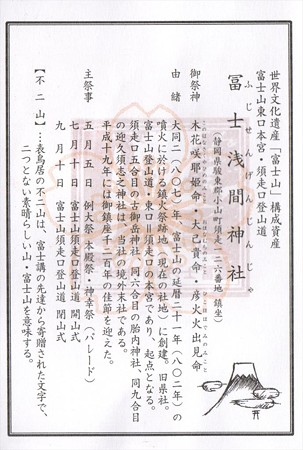 世界文化遺産「富士山」構成資産
富士山東口本宮・須走口登山道
ふじせんげんじんじゃ
冨士浅間神社
(静岡県駿東郡小山町須走一二六番地 鎮座)
御祭神 木花咲耶姫命・大己貴命・彦火火出見命
このはなさくやひめのみこと おおなむちのみこと ひこほほでみのみこと
由緒 大同二(八〇七)年、富士山の延暦二十一年(八〇二年)の
噴火に於ける鎮火祭跡地(現在の社地)に創建。旧県社。
富士山登山道・東口=須走口の本宮であり、起点となる。
須走口五合目の古御岳神社、同六合目の胎内神社、同九合目
の迎久須志之神社は、当社の境外末社である。
平成十九年には御鎮座千二百年の佳節を迎えた。
主祭事 五月五日 例大祭 本殿祭・神幸祭(パレード)
七月十日 富士山須走口登山道 開山式
九月十日 富士山須走口登山道 閉山式
【不二山】…表鳥居の不二山は、富士講の先達から寄贈された文字で、
二つとない素晴らしい山・富士山を意味する。